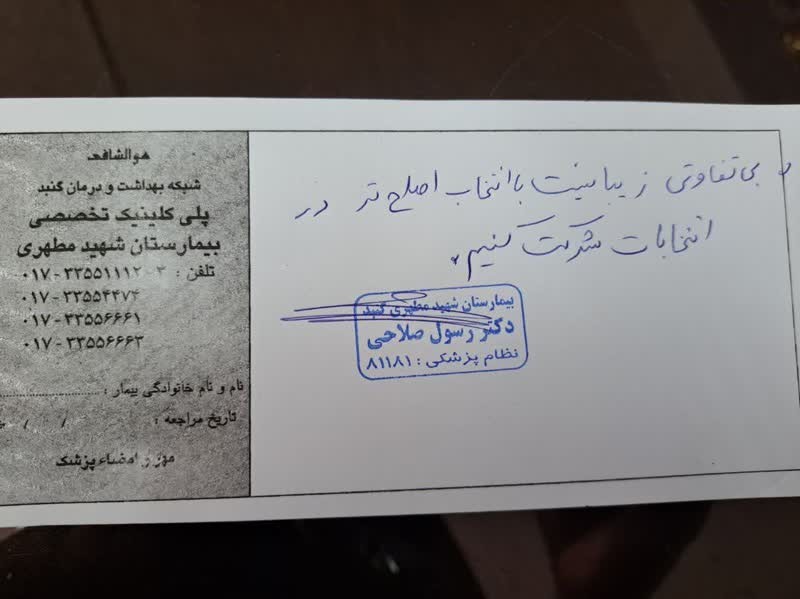 هوالشافی
شبکه بهداشت و درمان گنبد
پلی کلینیک تخصصی
بیمارستان شهید مطهری
تلفن : ۳-۳۳۵۵۱۱۱۲-۰۱۷
۰۱۷-۳۳۵۵۴۴۷۴
۰۱۷-۳۳۵۵۶۶۶۱
۰۱۷-۳۳۵۵۶۶۶۳
نام و نام خانوادگی بیمار :
تاریخ مراجعه : / /
مهر و امضاء پزشک
بی‌تفاوتی زیبا نیست با انتخاب اصلح تر در
انتخابات شرکت کنیم.
بیمارستان شهید مطهری گنبد
دکتر رسول صلاحی
نظام پزشکی : ۸۱۱۸۱